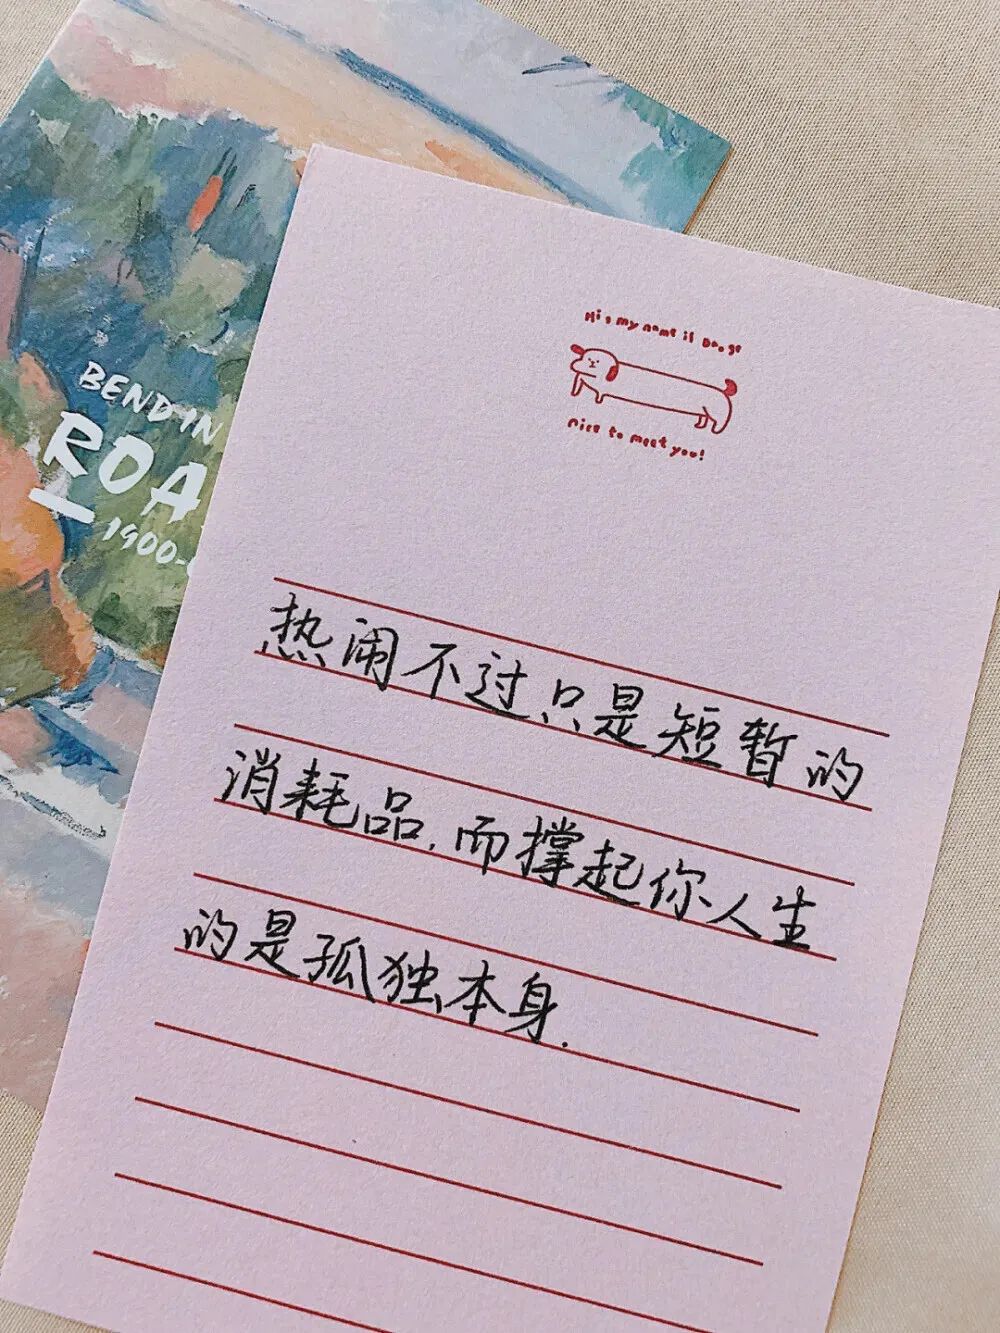 BEND IN
ROA
1900-
Hi, my name is
Nice to meet you!
热闹不过只是短暂的
消耗品.而撑起你人生
的是孤独本身.